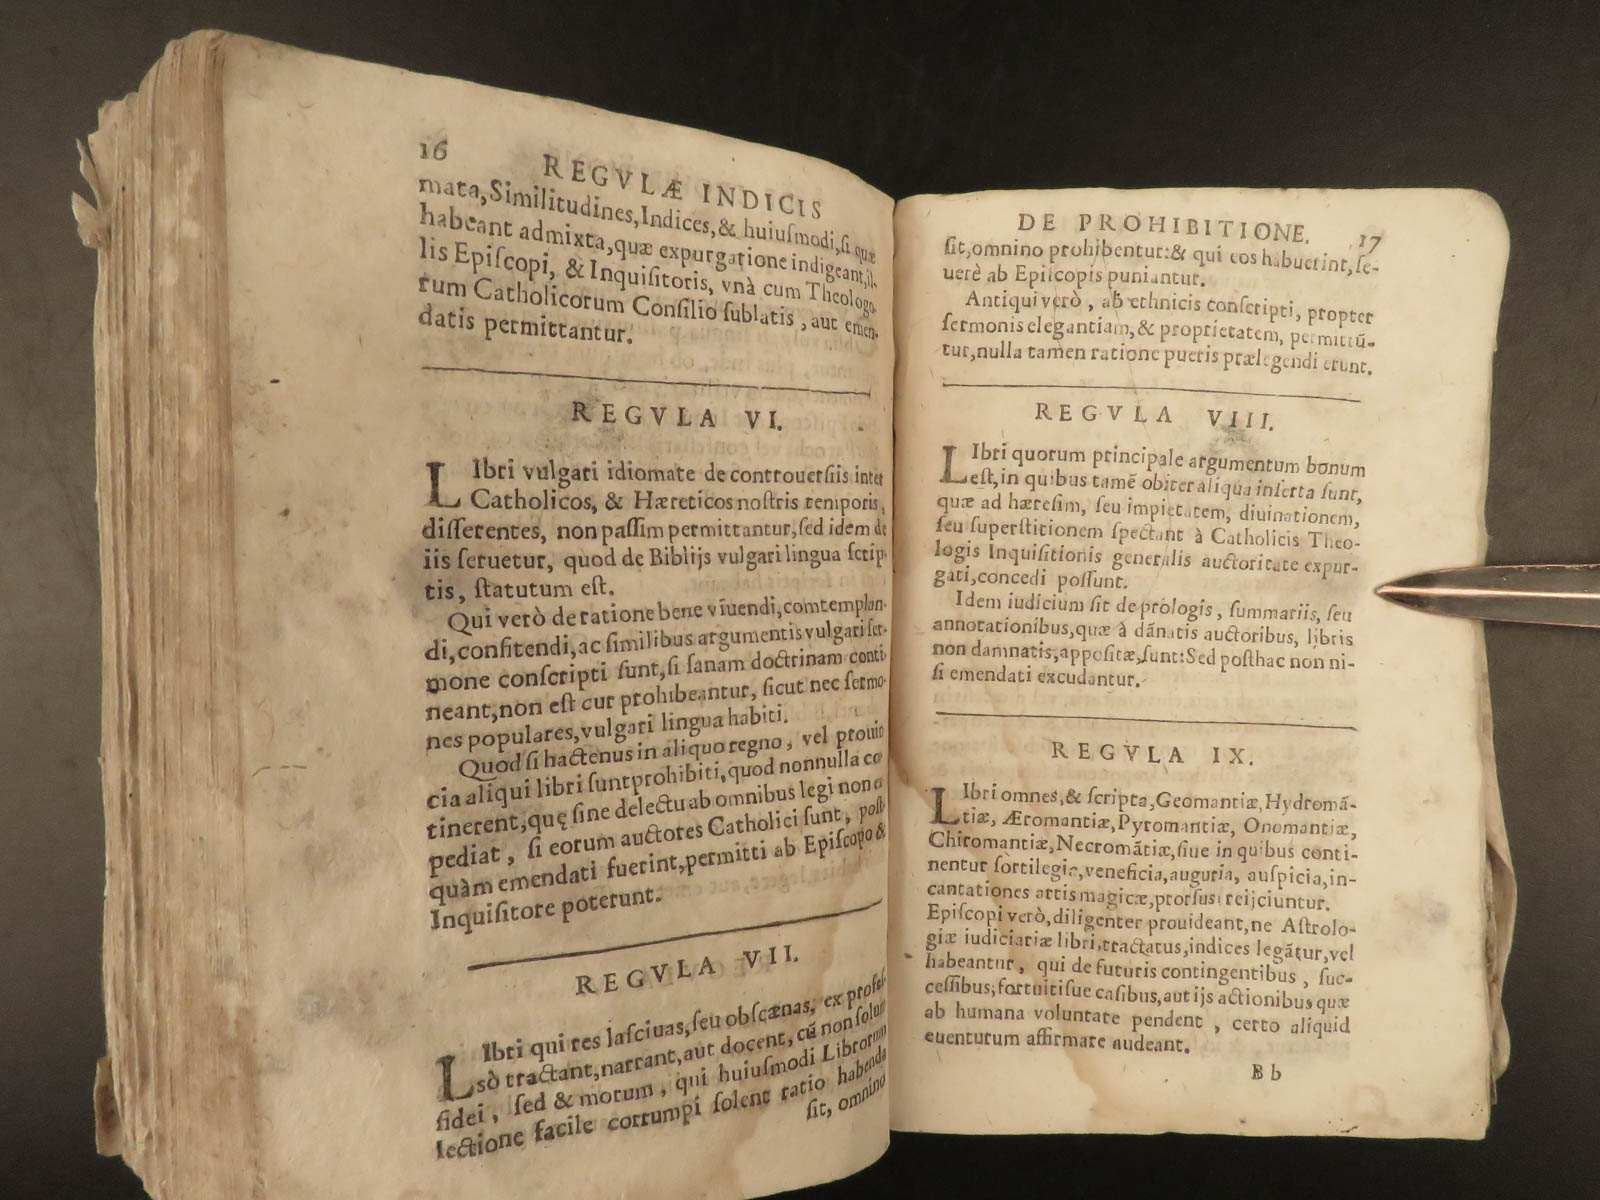 16
REGVLÆ INDICIS
mata, Similitudines, Indices, & huiuſmodi, ſi quæ
habeant admixta, quæ expurgatione indigeant, il-
lis Epiſcopi, & Inquiſitoris, vnà cum Theologo-
rum Catholicorum Conſilio ſublatis, aut emen-
datis permittantur.
REGVLA VI.
LIbri vulgari idiomate de controuerſiis inter
Catholicos, & Hæreticos noſtris temporis,
diſſerentes, non paſſim permittantur, ſed idem de
iis ſeruetur, quod de Biblijs vulgari lingua ſcrip
tis, ſtatutum eſt.
Qui verò de ratione bene viuendi, comtemplan-
di, confitendi, ac ſimilibus argumentis vulgari ſer-
mone conſcripti ſunt, ſi ſanam doctrinam conti-
neant, non eſt cur prohibeantur, ſicut nec ſermo-
nes populares, vulgari lingua habiti.
Quod ſi hactenus in aliquo regno, vel prouin
cia aliqui libri ſunt prohibiti, quod nonnulla co
tinerent, quę ſine delectu ab omnibus legi non ex
pediat, ſi eorum auctores Catholici ſunt, poſt-
quàm emendati fuerint, permitti ab Epiſcopo &
Inquiſitore poterunt.
REGVLA VII.
LIbri qui res laſciuas, ſeu obſcænas, ex profeſ-
sò tractant, narrant, aut docent, cū non ſolum
fidei, ſed & morum, qui huiuſmodi Librorum
lectione facile corrumpi ſolent ratio habenda
ſit, omnino
DE PROHIBITIONE. 17
ſit, omnino prohibentur: & qui eos habuerint, ſe-
uerè ab Epiſcopis puniantur.
Antiqui verò, ab ethnicis conſcripti, propter
ſermonis elegantiam, & proprietatem, permittū-
tur, nulla tamen ratione pueris prælegendi erunt.
REGVLA VIII.
LIbri quorum principale argumentum bonum
eſt, in quibus tamē obiter aliqua inſerta ſunt,
quæ ad hæreſim, ſeu impietatem, diuinationem,
ſeu ſuperſtitionem ſpectant à Catholicis Theo-
logis Inquiſitionis generalis auctoritate expur-
gati, concedi poſſunt.
Idem iudicium ſit de prologis, ſummariis, ſeu
annotationibus, quæ à dānatis auctoribus, libris
non damnatis, appoſitæ, ſunt: Sed poſthac non ni-
ſi emendati excudantur.
REGVLA IX.
LIbri omnes, & ſcripta, Geomantiæ, Hydromā-
tiæ, Æromantiæ, Pyromantiæ, Onomantiæ,
Chiromantiæ, Necromātiæ, ſiue in quibus conti-
nentur ſortilegia, veneficia, auguria, auſpicia, in-
cantationes artis magicæ, prorſus reijciuntur.
Epiſcopi verò, diligenter prouideant, ne Aſtrolo-
giæ iudiciariæ libri, tractatus, indices legātur, vel
habeantur, qui de futuris contingentibus, ſuc-
ceſſibus, fortuitiſue caſibus, aut ijs actionibus quæ
ab humana voluntate pendent, certo aliquid
euenturum affirmare audeant.
Bb